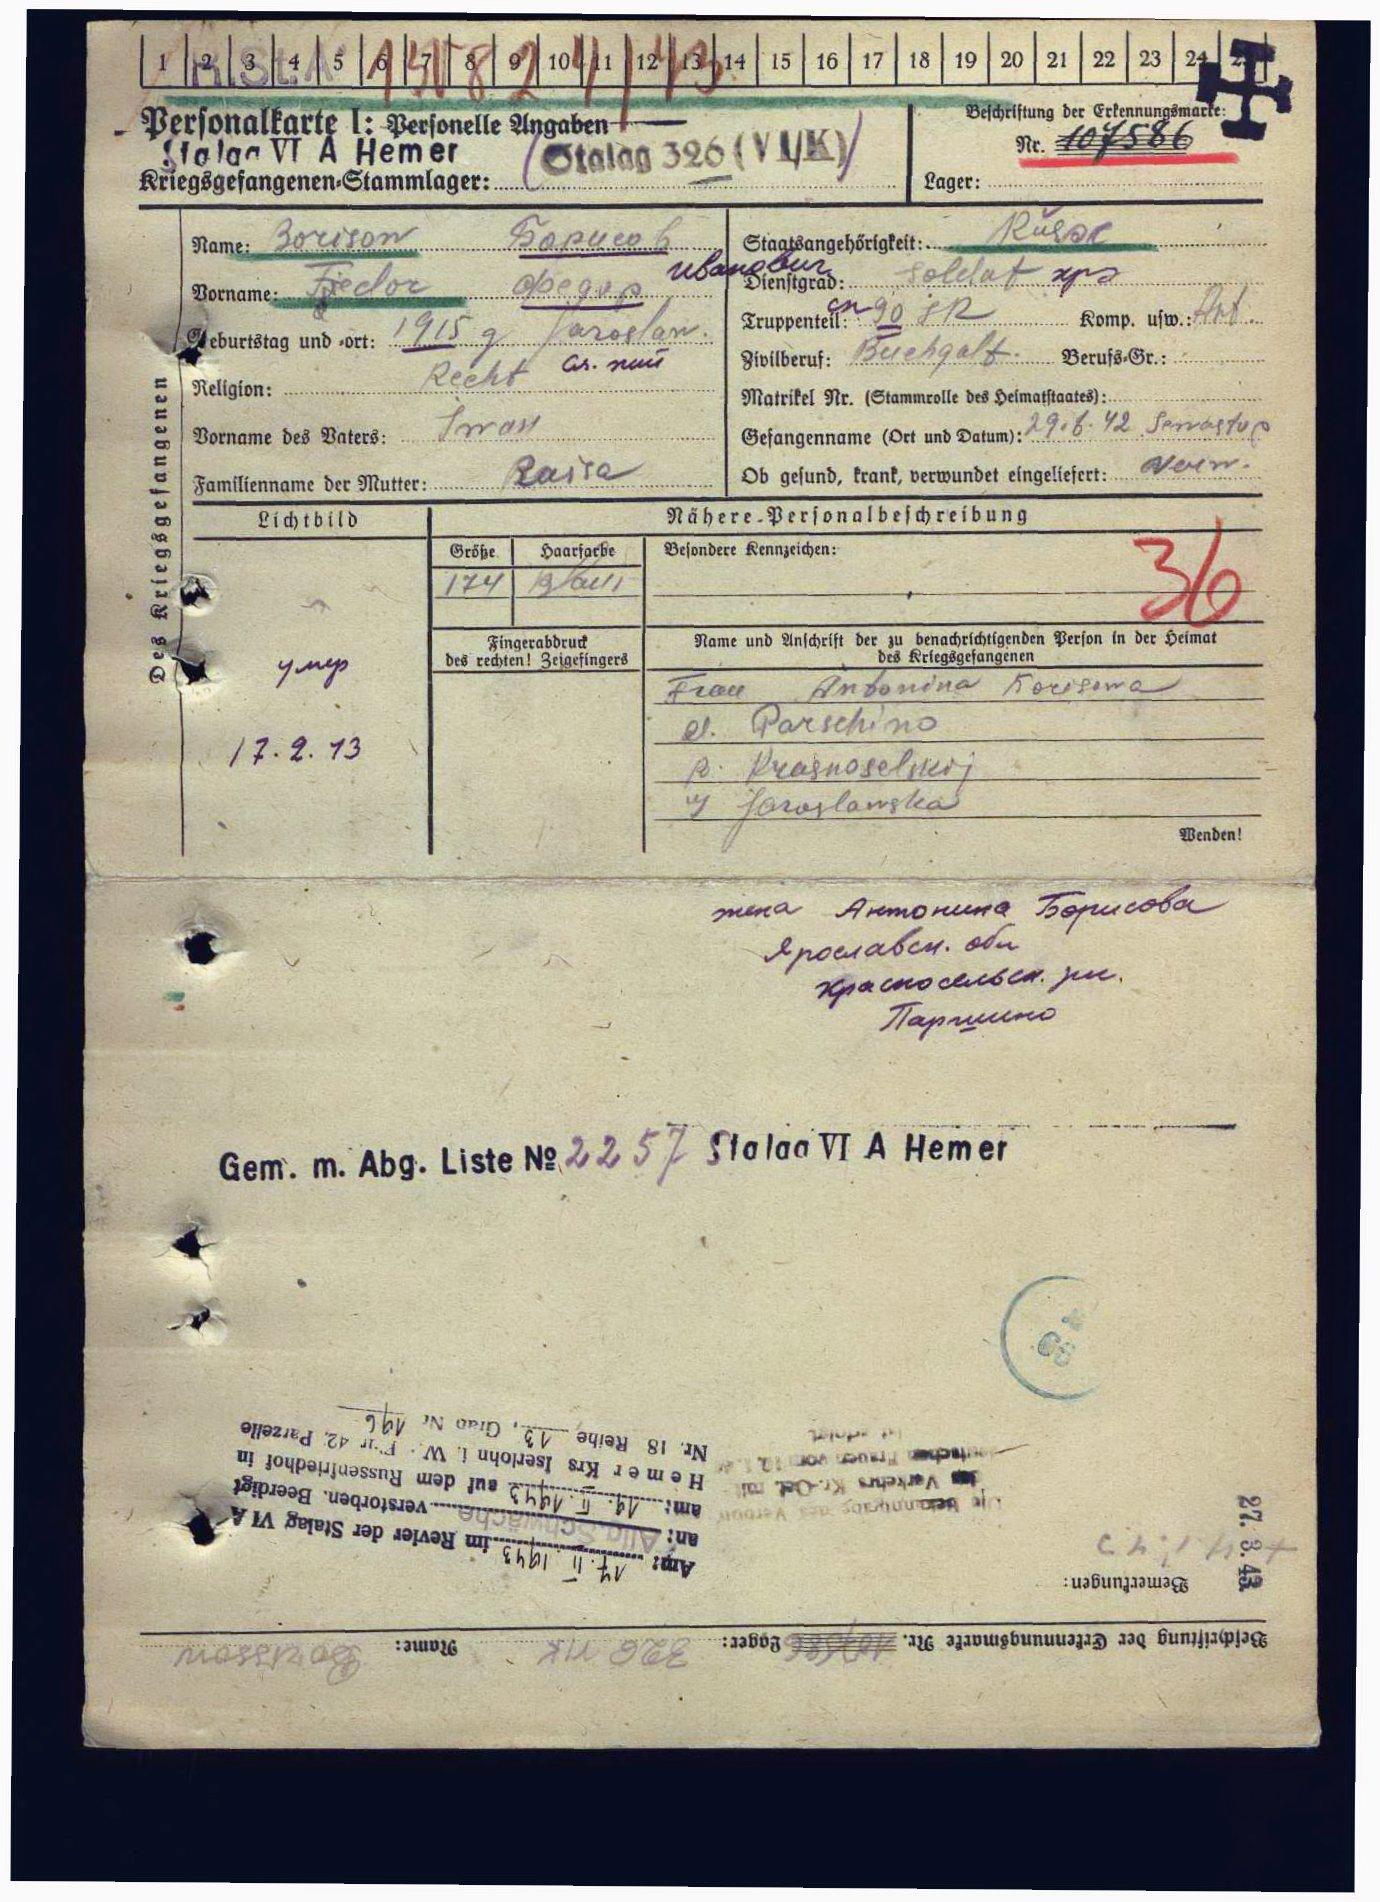 1 2 3 4 5 6 7 8 9 10 11 12 13 14 15 16 17 18 19 20 21 22 23 24 25
Personalkarte I: Personelle Angaben
Beschriftung der Erkennungsmarke:
Stalag VI A Hemer (Stalag 326 (VI/K)) Nr. 107586
Kriegsgefangenen-Stammlager: Lager:
Des Kriegsgefangenen
Name: Borisow Борисов
Vorname: Fiedor Федор Иванович
Geburtstag und -ort: 1915 g Jaroslaw.
Religion: Recht
Vorname des Vaters: Iwan
Familienname der Mutter: Raisa
Staatsangehörigkeit: Russe
Dienstgrad: Soldat
Truppenteil: 90 JR Komp. usw.: Art.
Zivilberuf: Buchgalt. Berufs-Gr.:
Matrikel Nr. (Stammrolle des Heimatstaates):
Gefangenname (Ort und Datum): 29.6.42 Sewastop
Ob gesund, krank, verwundet eingeliefert: verw.
Lichtbild
Nähere Personalbeschreibung
Größe Haarfarbe Besondere Kennzeichen:
174 36
Fingerabdruck
des rechten! Zeigefingers
Name und Anschrift der zu benachrichtigenden Person in der Heimat
des Kriegsgefangenen
умер
17.2.43
Frau Antonina Borisowa
d. Parschino
r. Krasnoselskij
Jaroslawska
Wenden!
жена Антонина Борисова
Ярославск. обл
Красносельск. рн.
Паршино
Gem. m. Abg. Liste № 2257 Stalag VI A Hemer
Beschriftung der Erkennungsmarke Nr. 107586 Lager: 326 VI K Name: Borissow
Bemerkungen:
27. 3. 43
Am: 17. II. 1943 im Revier der Stalag VI A
an: Allg. Schwäche verstorben. Beerdigt
am: 19. II. 1943 auf dem Russenfriedhof in
Hemer Krs Iserlohn i. W. Flur 42, Parzelle
Nr. 18 Reihe 13, Grab Nr 196